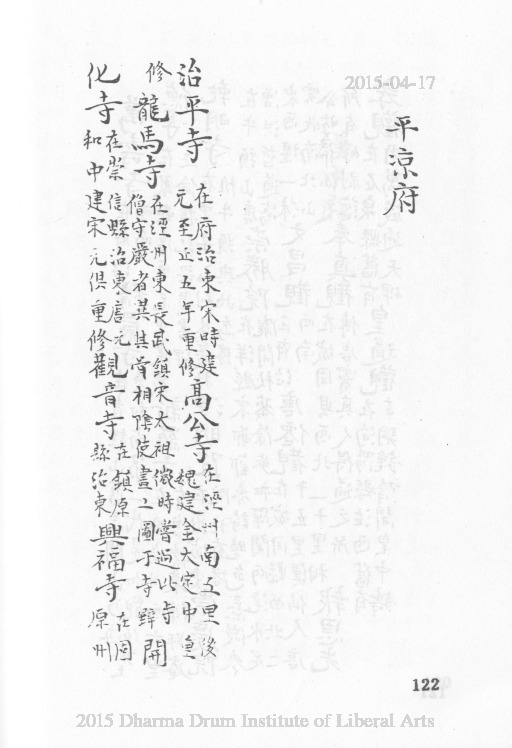 2015-04-17
平涼府
治平寺 在府治東宋時建
元至正五年重修 高公寺 在涇州南五里後
魏建金大定中重
修 龍馬寺 在涇州東長武鎮宋太祖微時嘗過此寺
僧守嚴者異其骨相陰使畫工圖于寺壁 開
化寺 在崇信縣治東唐元
和中建宋元俱重修 觀音寺 在鎮原
縣治東 興福寺 在固
原州
122
2015 Dharma Drum Institute of Liberal Arts